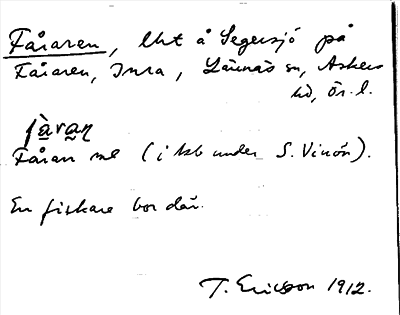 Fåraren, lht å Segersjö på
Fåraren, Inra, Lännäs sn, Askers
hd, Ör. l.
få̀raṇ
Fåran ne (i kb under S. Vinön).
En fiskare bor där.
T. Ericson 1912.